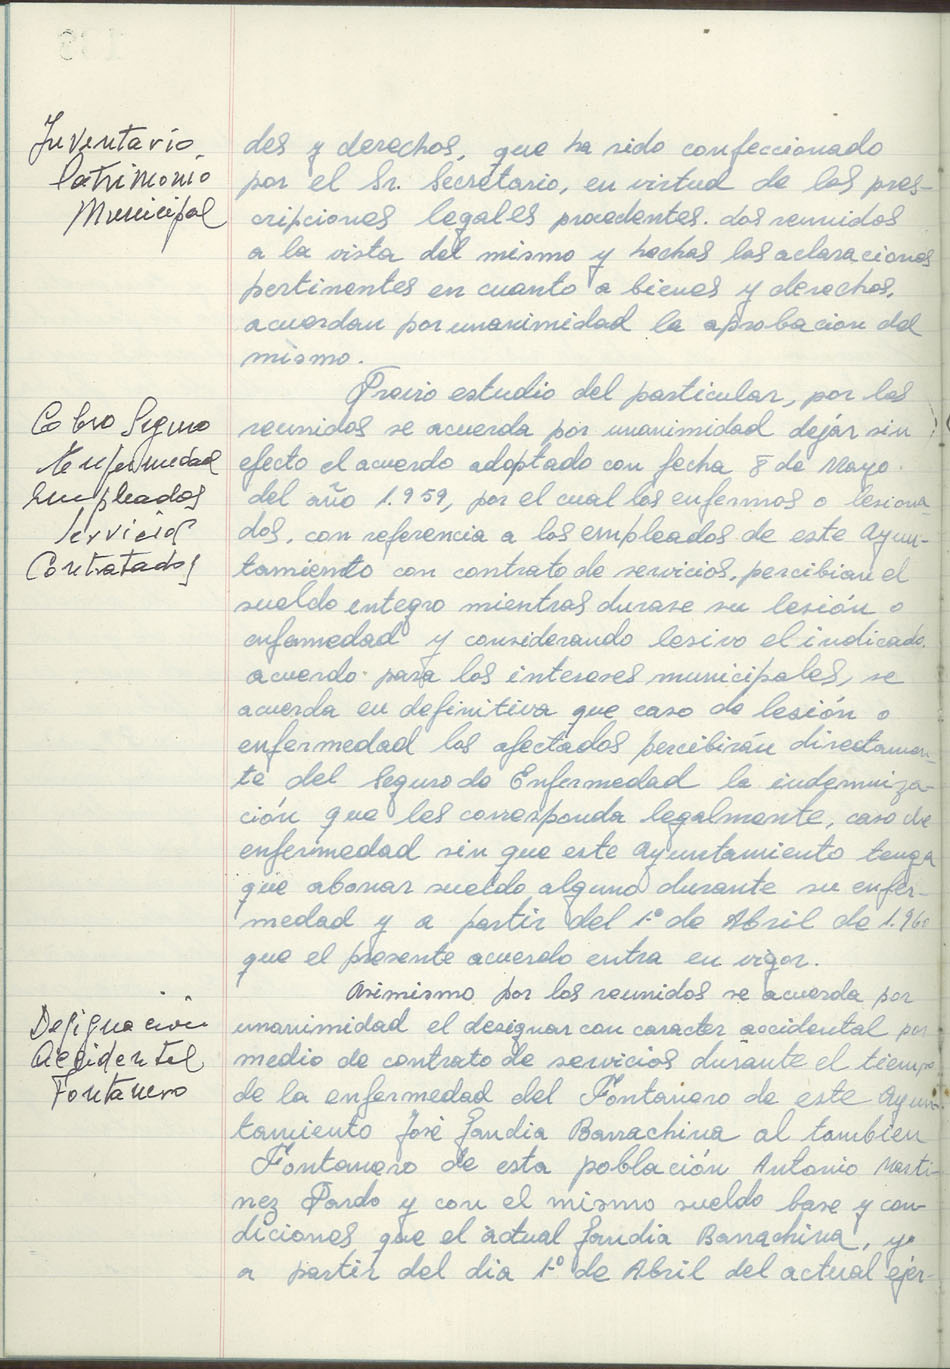 Inventario
Patrimonio
Municipal
des y derechos, que ha sido confeccionado
por el Sr. Secretario, en virtud de las pres-
cripciones legales procedentes. Los reunidos
a la vista del mismo y hechas las aclaraciones
pertinentes en cuanto a bienes y derechos,
acuerdan por unanimidad la aprobacion del
mismo.
Cobro Seguro
Enfermedad
Empleados
Servicios
Contratados
Previo estudio del particular, por los
reunidos se acuerda por unanimidad dejar sin
efecto el acuerdo adoptado con fecha 8 de Mayo
del año 1.959, por el cual los enfermos o lesiona-
dos, con referencia a los empleados de este Ayun-
tamiento con contrato de servicios, percibian el
sueldo integro mientras durase su lesión o
enfermedad y considerando lesivo el indicado
acuerdo para los intereses municipales, se
acuerda en definitiva que caso de lesión o
enfermedad los afectados percibirán directamen-
te del Seguro de Enfermedad la indemniza-
ción que les corresponda legalmente, caso de
enfermedad sin que este Ayuntamiento tenga
que abonar sueldo alguno durante su enfer-
medad y a partir del 1º de Abril de 1.960
que el presente acuerdo entra en vigor.
Designación
Accidental
Fontanero
Asimismo por los reunidos se acuerda por
unanimidad el designar con caracter accidental por
medio de contrato de servicios durante el tiempo
de la enfermedad del Fontanero de este Ayun-
tamiento José Gandia Barrachina al tambien
Fontanero de esta población Antonio Marti-
nez Pardo y con el mismo sueldo base y con-
diciones que el actual Gandia Barrachina, y
a partir del dia 1º de Abril del actual ejer-